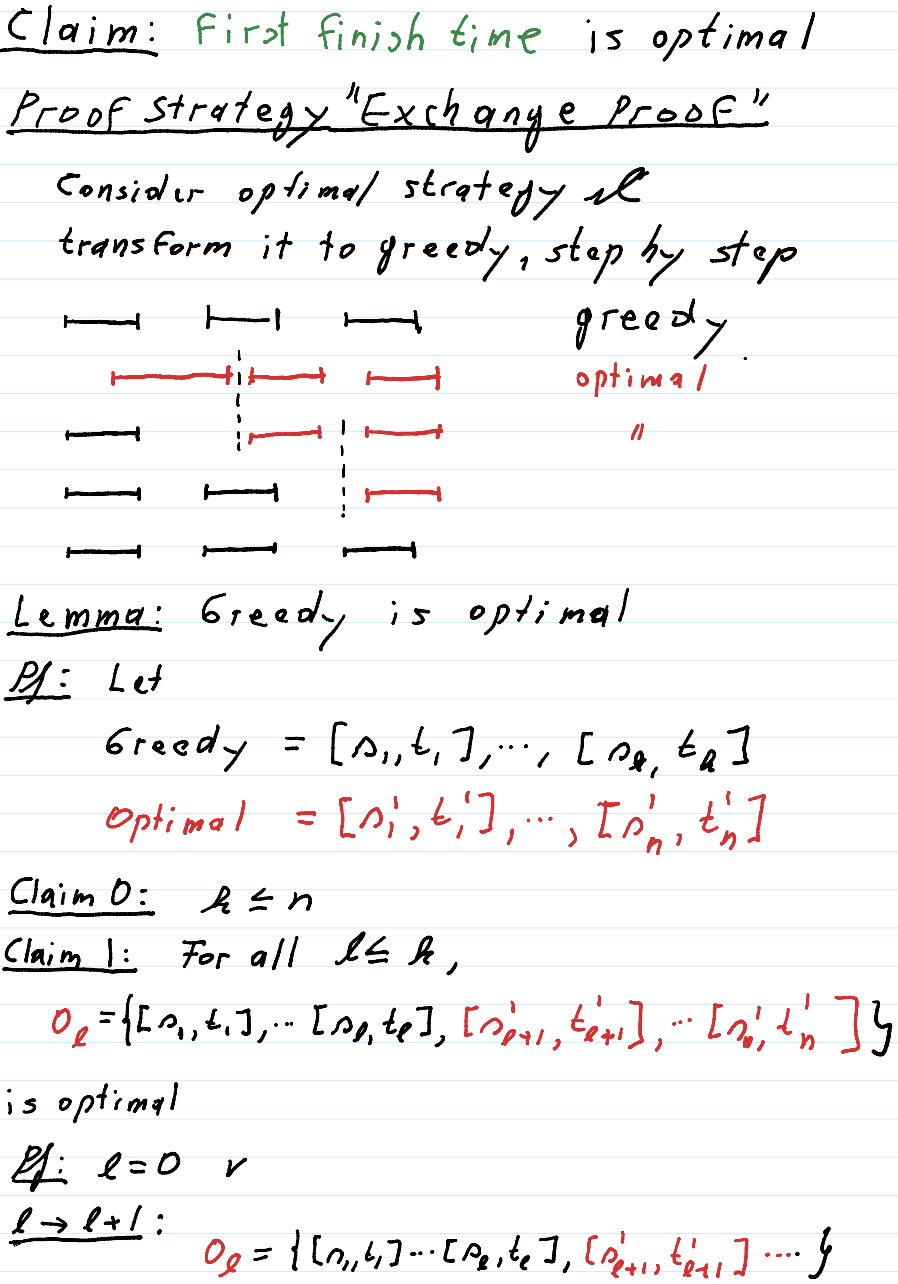 Claim: First finish time is optimal
Proof Strategy "Exchange Proof"
Consider optimal strategy &
transform it to greedy, step by step
greedy
optimal
"
Lemma: Greedy is optimal
Pf: Let
Greedy = [s₁, t₁], ..., [sₖ, tₖ]
Optimal = [s₁', t₁'], ..., [sₙ', tₙ']
Claim 0: k ≤ n
Claim 1: For all l ≤ k,
Oₗ = {[s₁, t₁], ... [sₗ, tₗ], [s'ₗ₊₁, t'ₗ₊₁], ... [sₙ', tₙ']}
is optimal
Pf: l = 0 ✓
l → l+1:
Oₗ = {[s₁, t₁] ... [sₗ, tₗ], [s'ₗ₊₁, t'ₗ₊₁] ....}